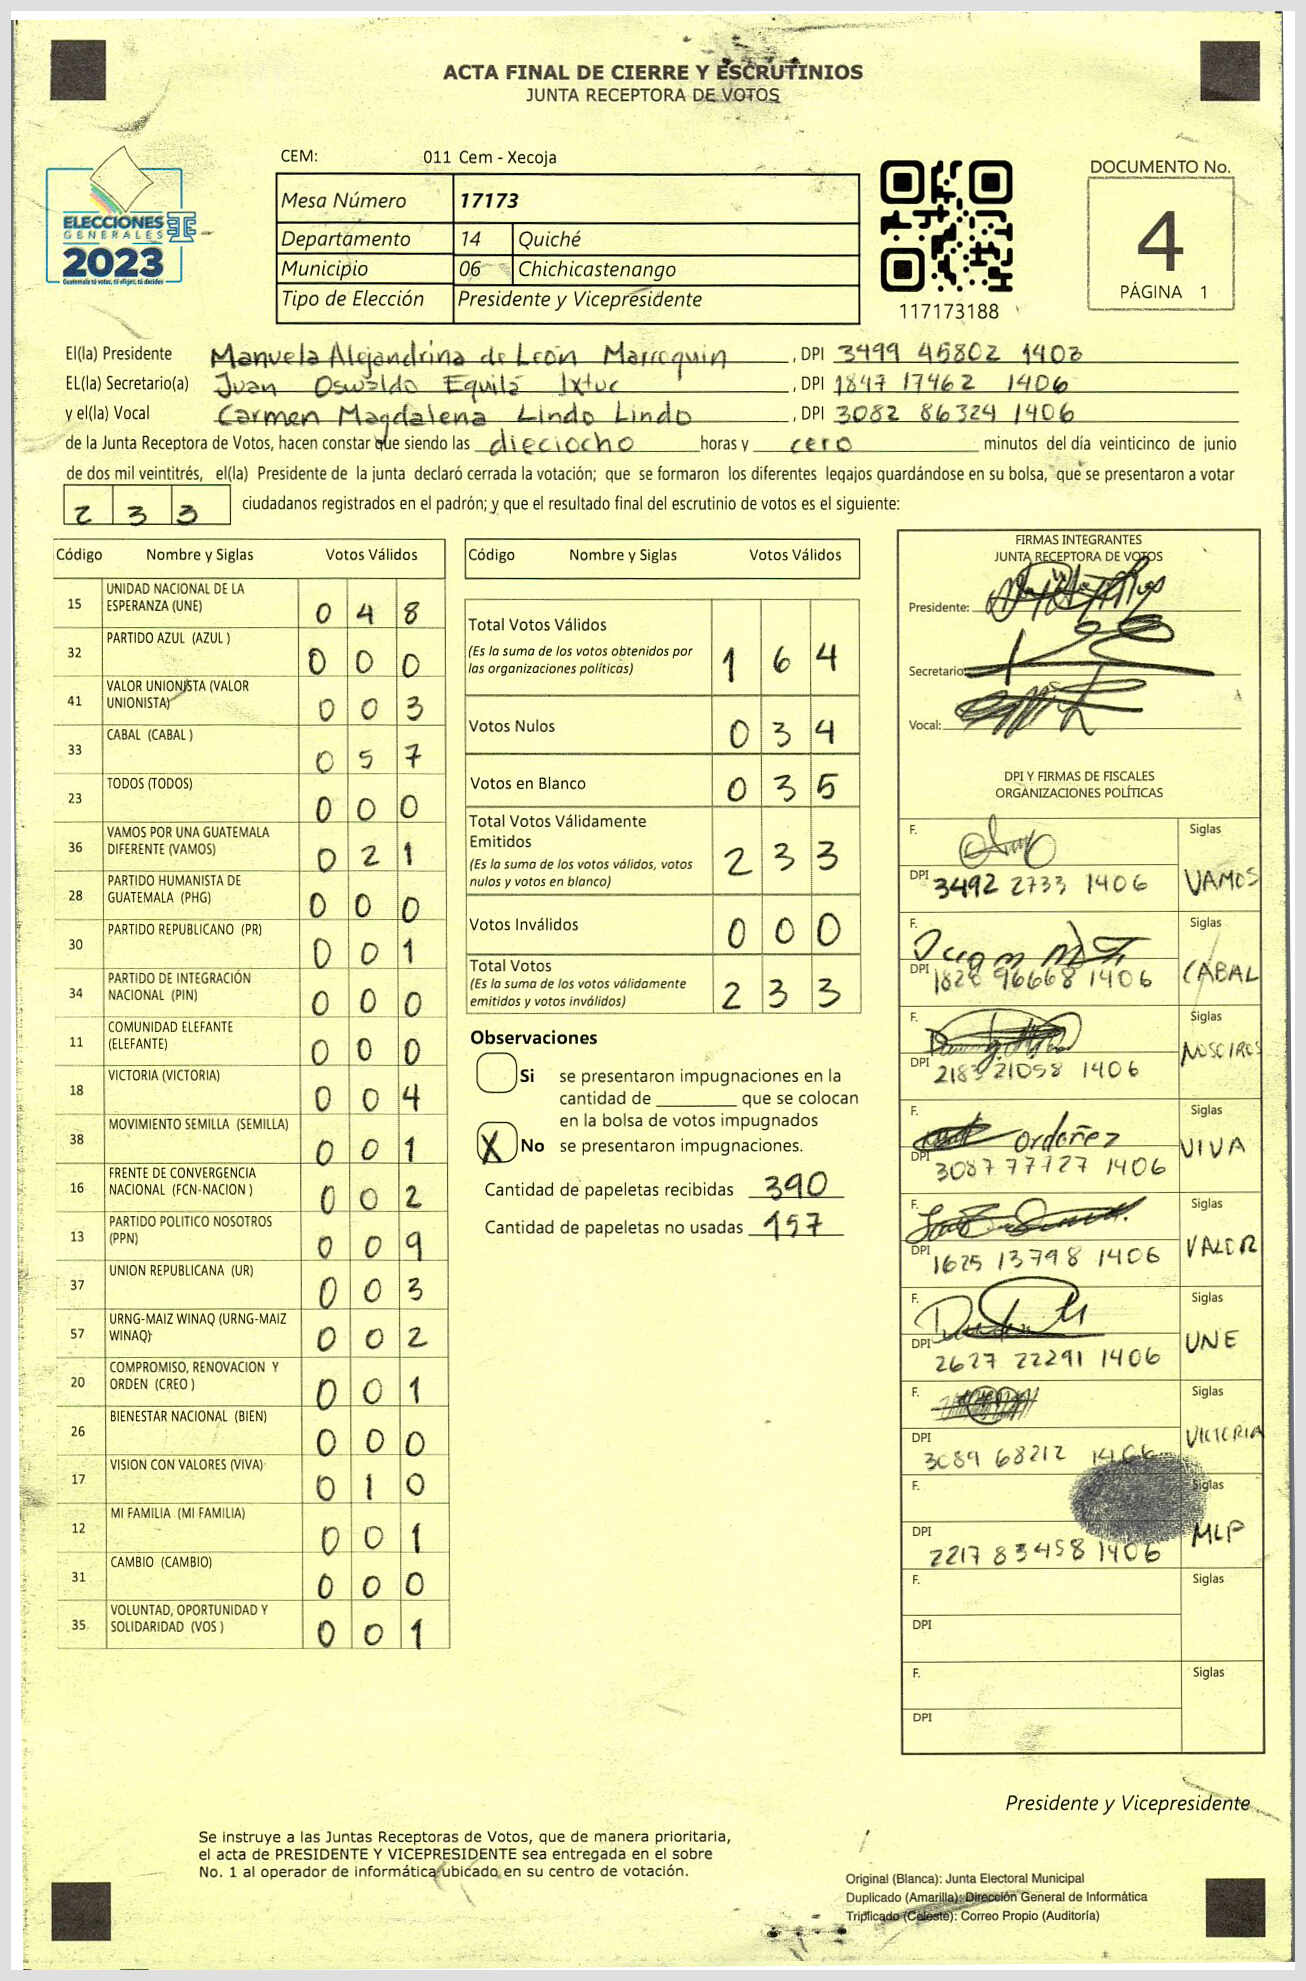 ACTA FINAL DE CIERRE Y ESCRUTINIOS
JUNTA RECEPTORA DE VOTOS
ELECCIONES
GENERALES
2023
Guatemala tú votas, tú eliges, tú decides
TSE
CEM: 011 Cem - Xecoja
Mesa Número 17173
Departamento 14 Quiché
Municipio 06 Chichicastenango
Tipo de Elección Presidente y Vicepresidente
117173188
DOCUMENTO No.
4
PÁGINA 1
El(la) Presidente Manuela Alejandrina de León Marroquin, DPI 3499 45802 1403
EL(la) Secretario(a) Juan Oswaldo Equilá Ixtuc, DPI 1847 17462 1406
y el(la) Vocal Carmen Magdalena Lindo Lindo, DPI 3082 86324 1406
de la Junta Receptora de Votos, hacen constar que siendo las dieciocho horas y cero minutos del día veinticinco de junio
de dos mil veintitrés, el(la) Presidente de la junta declaró cerrada la votación; que se formaron los diferentes legajos guardándose en su bolsa, que se presentaron a votar
2 3 3 ciudadanos registrados en el padrón; y que el resultado final del escrutinio de votos es el siguiente:
Código Nombre y Siglas Votos Válidos
15 UNIDAD NACIONAL DE LA ESPERANZA (UNE) 0 4 8
32 PARTIDO AZUL (AZUL ) 0 0 0
41 VALOR UNIONISTA (VALOR UNIONISTA) 0 0 3
33 CABAL (CABAL ) 0 5 7
23 TODOS (TODOS) 0 0 0
36 VAMOS POR UNA GUATEMALA DIFERENTE (VAMOS) 0 2 1
28 PARTIDO HUMANISTA DE GUATEMALA (PHG) 0 0 0
30 PARTIDO REPUBLICANO (PR) 0 0 1
34 PARTIDO DE INTEGRACIÓN NACIONAL (PIN) 0 0 0
11 COMUNIDAD ELEFANTE (ELEFANTE) 0 0 0
18 VICTORIA (VICTORIA) 0 0 4
38 MOVIMIENTO SEMILLA (SEMILLA) 0 0 1
16 FRENTE DE CONVERGENCIA NACIONAL (FCN-NACION ) 0 0 2
13 PARTIDO POLITICO NOSOTROS (PPN) 0 0 9
37 UNION REPUBLICANA (UR) 0 0 3
57 URNG-MAIZ WINAQ (URNG-MAIZ WINAQ) 0 0 2
20 COMPROMISO, RENOVACION Y ORDEN (CREO ) 0 0 1
26 BIENESTAR NACIONAL (BIEN) 0 0 0
17 VISION CON VALORES (VIVA) 0 1 0
12 MI FAMILIA (MI FAMILIA) 0 0 1
31 CAMBIO (CAMBIO) 0 0 0
35 VOLUNTAD, OPORTUNIDAD Y SOLIDARIDAD (VOS ) 0 0 1
Código Nombre y Siglas Votos Válidos
Total Votos Válidos
(Es la suma de los votos obtenidos por las organizaciones políticas) 1 6 4
Votos Nulos 0 3 4
Votos en Blanco 0 3 5
Total Votos Válidamente Emitidos
(Es la suma de los votos válidos, votos nulos y votos en blanco) 2 3 3
Votos Inválidos 0 0 0
Total Votos
(Es la suma de los votos válidamente emitidos y votos inválidos) 2 3 3
Observaciones
Si se presentaron impugnaciones en la
cantidad de ________ que se colocan
en la bolsa de votos impugnados
X No se presentaron impugnaciones.
Cantidad de papeletas recibidas 390
Cantidad de papeletas no usadas 157
FIRMAS INTEGRANTES
JUNTA RECEPTORA DE VOTOS
Presidente:
Secretario:
Vocal:
DPI Y FIRMAS DE FISCALES
ORGANIZACIONES POLÍTICAS
F. Siglas
DPI 3492 2733 1406 VAMOS
F. Siglas
DPI 1828 96668 1406 CABAL
F. Siglas
DPI 2183 21058 1406 NOSOTROS
F. Ordoñez Siglas
DPI 3087 77727 1406 VIVA
F. Siglas
DPI 1625 13798 1406 VALOR
F. Siglas
DPI 2627 22291 1406 UNE
F. Siglas
DPI 3089 68212 1406 VICTORIA
F. Siglas
DPI 2217 83458 1406 MLP
F. Siglas
DPI
F. Siglas
DPI
Presidente y Vicepresidente
Se instruye a las Juntas Receptoras de Votos, que de manera prioritaria,
el acta de PRESIDENTE Y VICEPRESIDENTE sea entregada en el sobre
No. 1 al operador de informática ubicado en su centro de votación.
Original (Blanca): Junta Electoral Municipal
Duplicado (Amarilla): Dirección General de Informática
Triplicado (Celeste): Correo Propio (Auditoría)